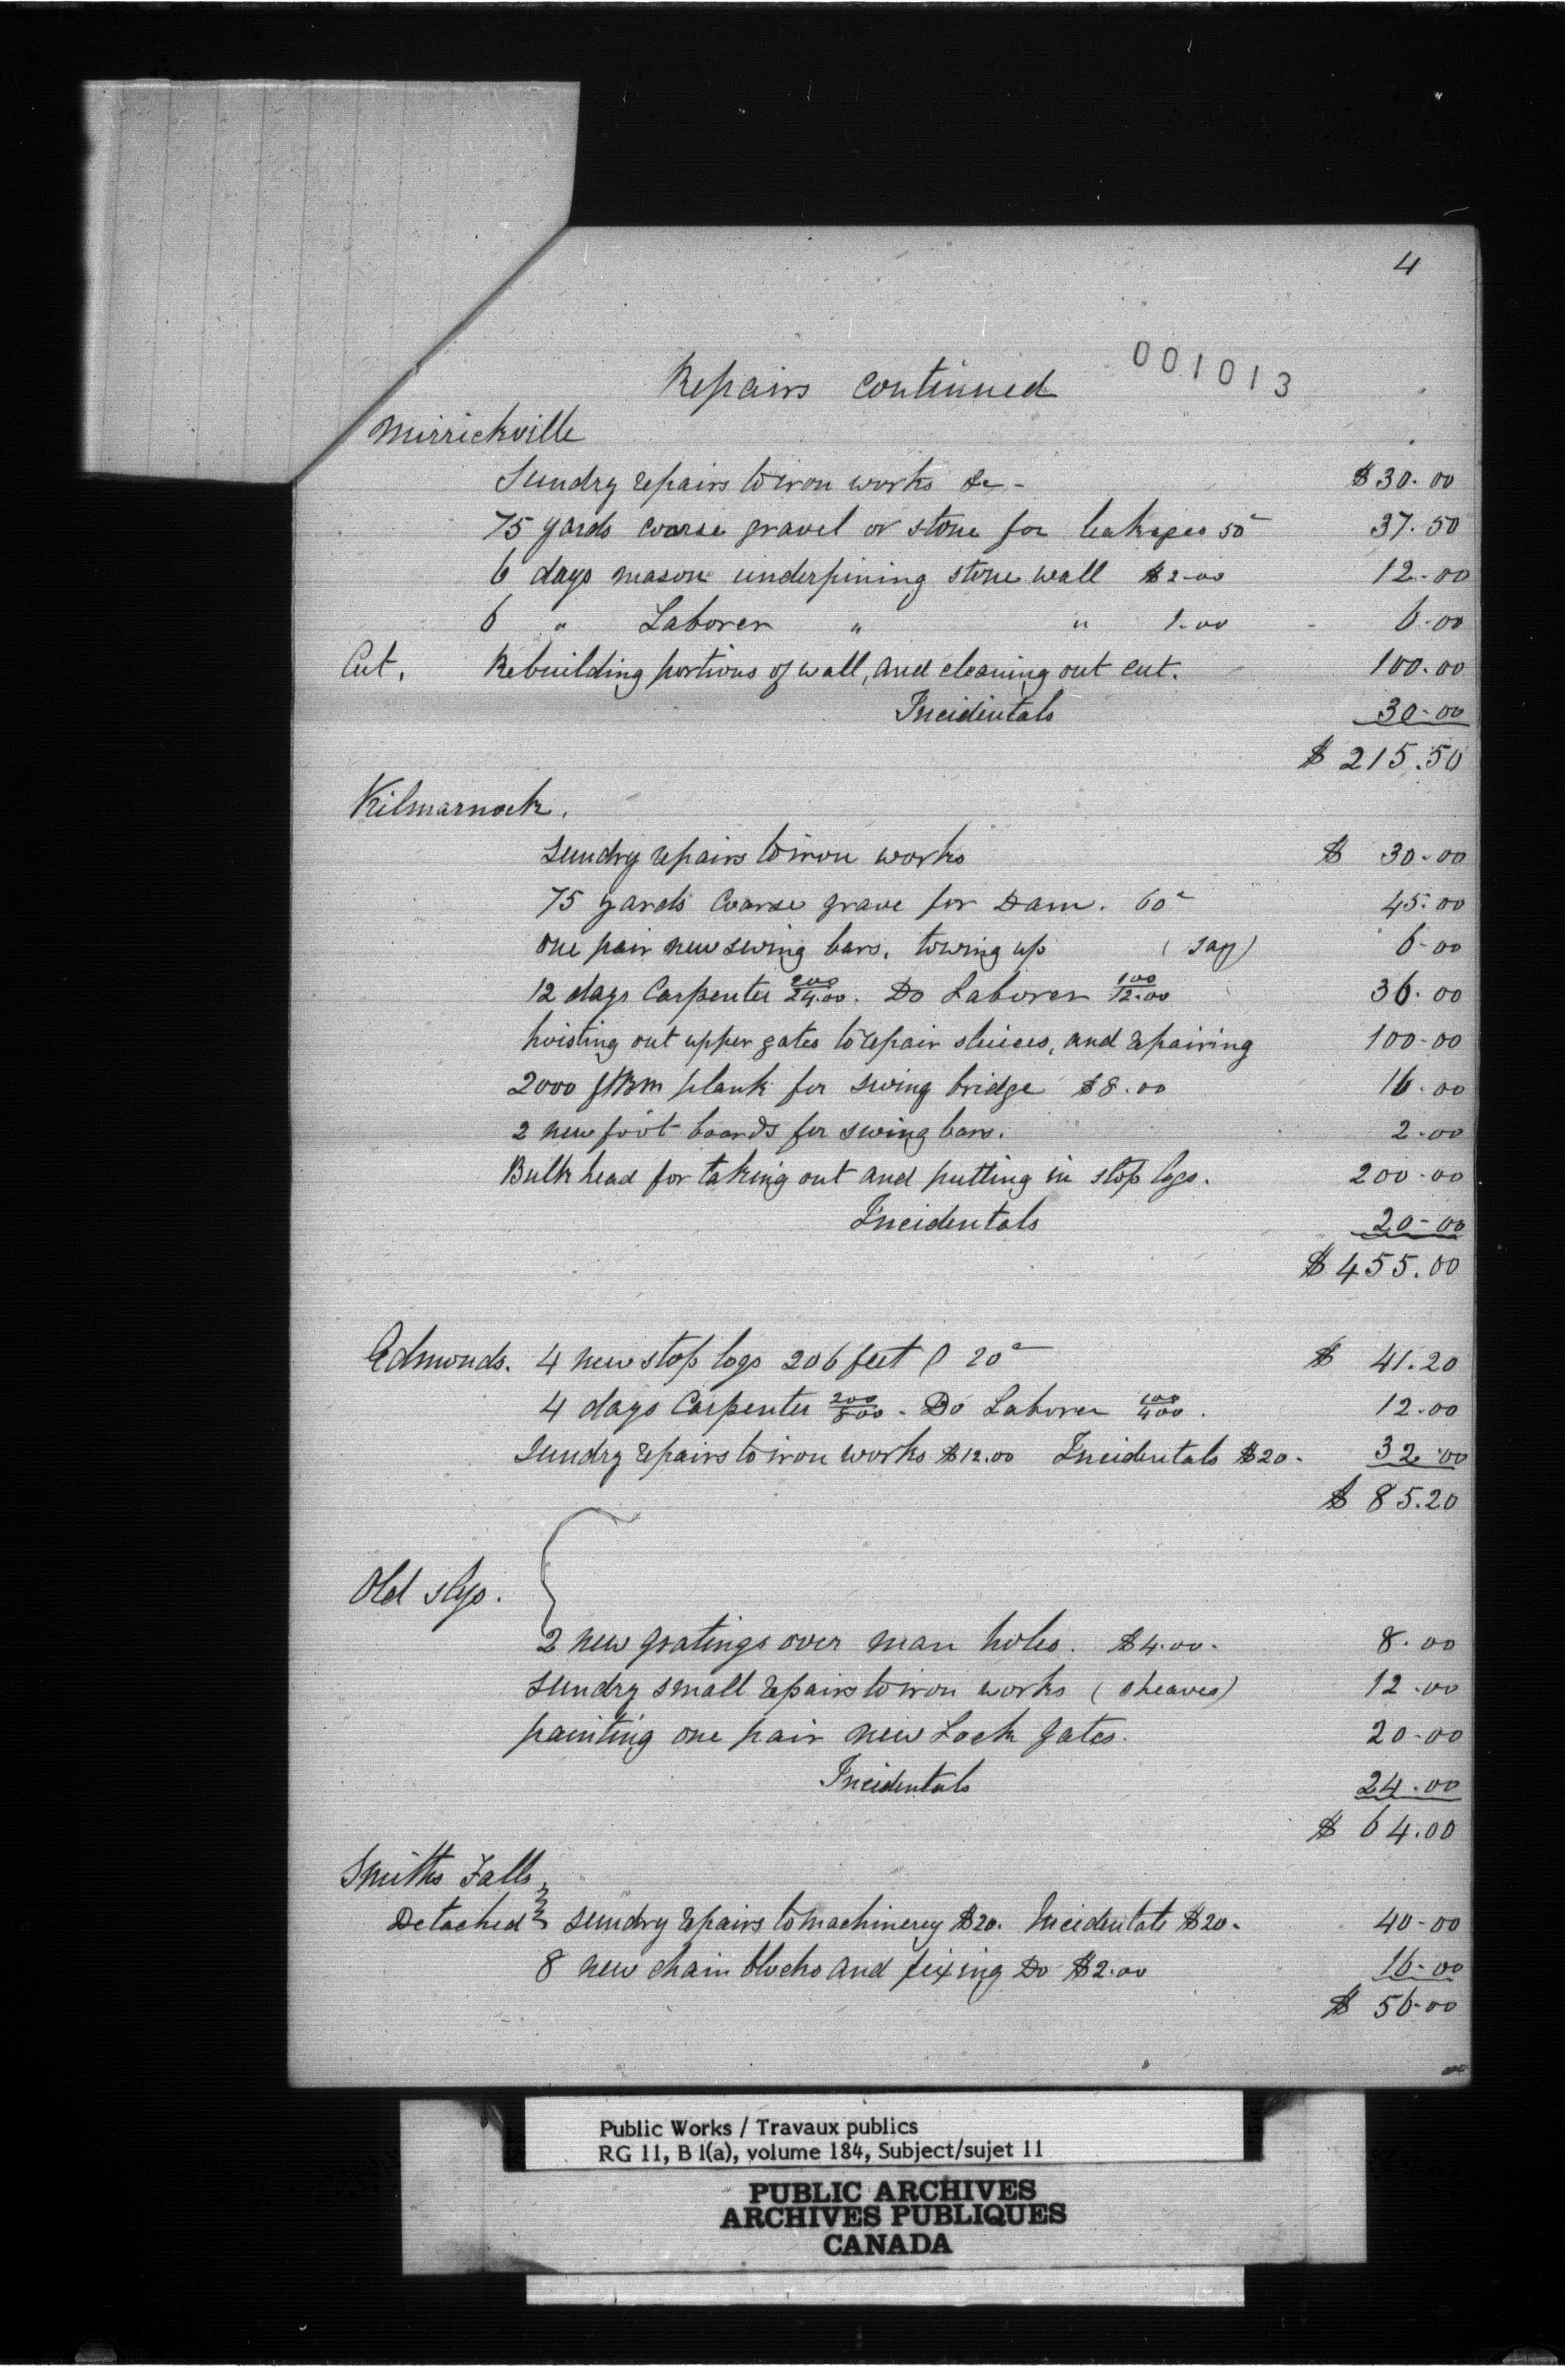 4
001013
Repairs continued
Mirrickville
Sundry repairs to iron works &c - $30.00
75 yards coarse gravel or stone for leakages 50c 37.50
6 days mason underpining stone wall $2.00 12.00
6 " Laborer " " 1.00 6.00
Cut. Rebuilding portions of wall, and cleaning out cut. 100.00
Incidentals 30.00
$ 215.50
Kilmarnock.
Sundry repairs to iron works $ 30.00
75 yards Coarse grave for Dam. 60c 45.00
one pair new swing bars, towing up (say) 6.00
12 days Carpenter 200/24.00. Do Laborer 100/12.00 36.00
hoisting out upper gates to repair sluices, and repairing 100.00
2000 ft Bm plank for swing bridge $8.00 16.00
2 new foot boards for swing bars. 2.00
Bulk head for taking out and putting in stop logs. 200.00
Incidentals 20.00
$ 455.00
Edmonds. 4 new stop logs 206 feet @ 20c $ 41.20
4 days Carpenter 200/800 - Do Laborer 100/400. 12.00
Sundry repairs to iron works $12.00 Incidentals $20 - 32.00
$ 85.20
Old Slys.
2 new gratings over man holes. $4.00 - 8.00
Sundry small repairs to iron works (sheaves) 12.00
painting one pair new Lock gates. 20.00
Incidentals 24.00
$ 64.00
Smiths Falls
Detached Sundry repairs to machinery $20. Incidentals $20 - 40.00
8 new chain blocks and fixing Do $2.00 16.00
$ 56.00
Public Works / Travaux publics
RG 11, B 1(a), volume 184, Subject/sujet 11
PUBLIC ARCHIVES
ARCHIVES PUBLIQUES
CANADA